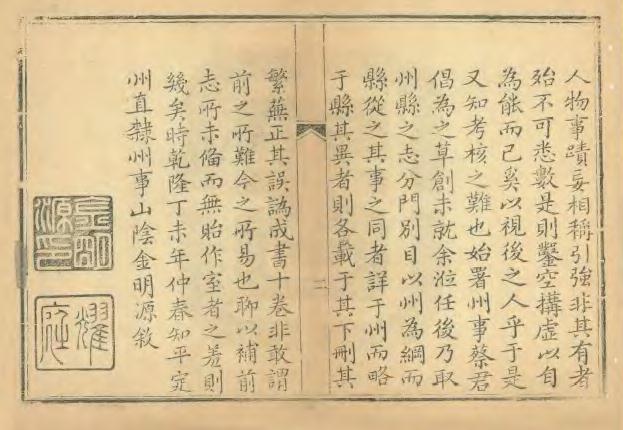 人物事蹟妄相稱引強非其有者
殆不可悉數是則鑿空搆虛以自
為能而已奚以視後之人乎于是
又知考核之難也始署州事蔡君
倡為之草創未就余涖任後乃取
州縣之志分門別目以州為綱而
縣從之其事之同者詳于州而略
于縣其異者則各載于其下刪其
二
繁蕪正其誤譌成書十卷非敢謂
前之所難今之所易也聊以補前
志所未備而無貽作室者之羞則
幾矣時乾隆丁未年仲春知平定
州直隸州事山陰金明源敘
金明源印
耀庭